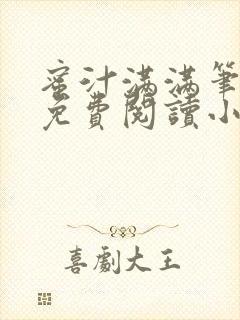 蜜汁滿滿筆
免費閱讀小
喜劇大王